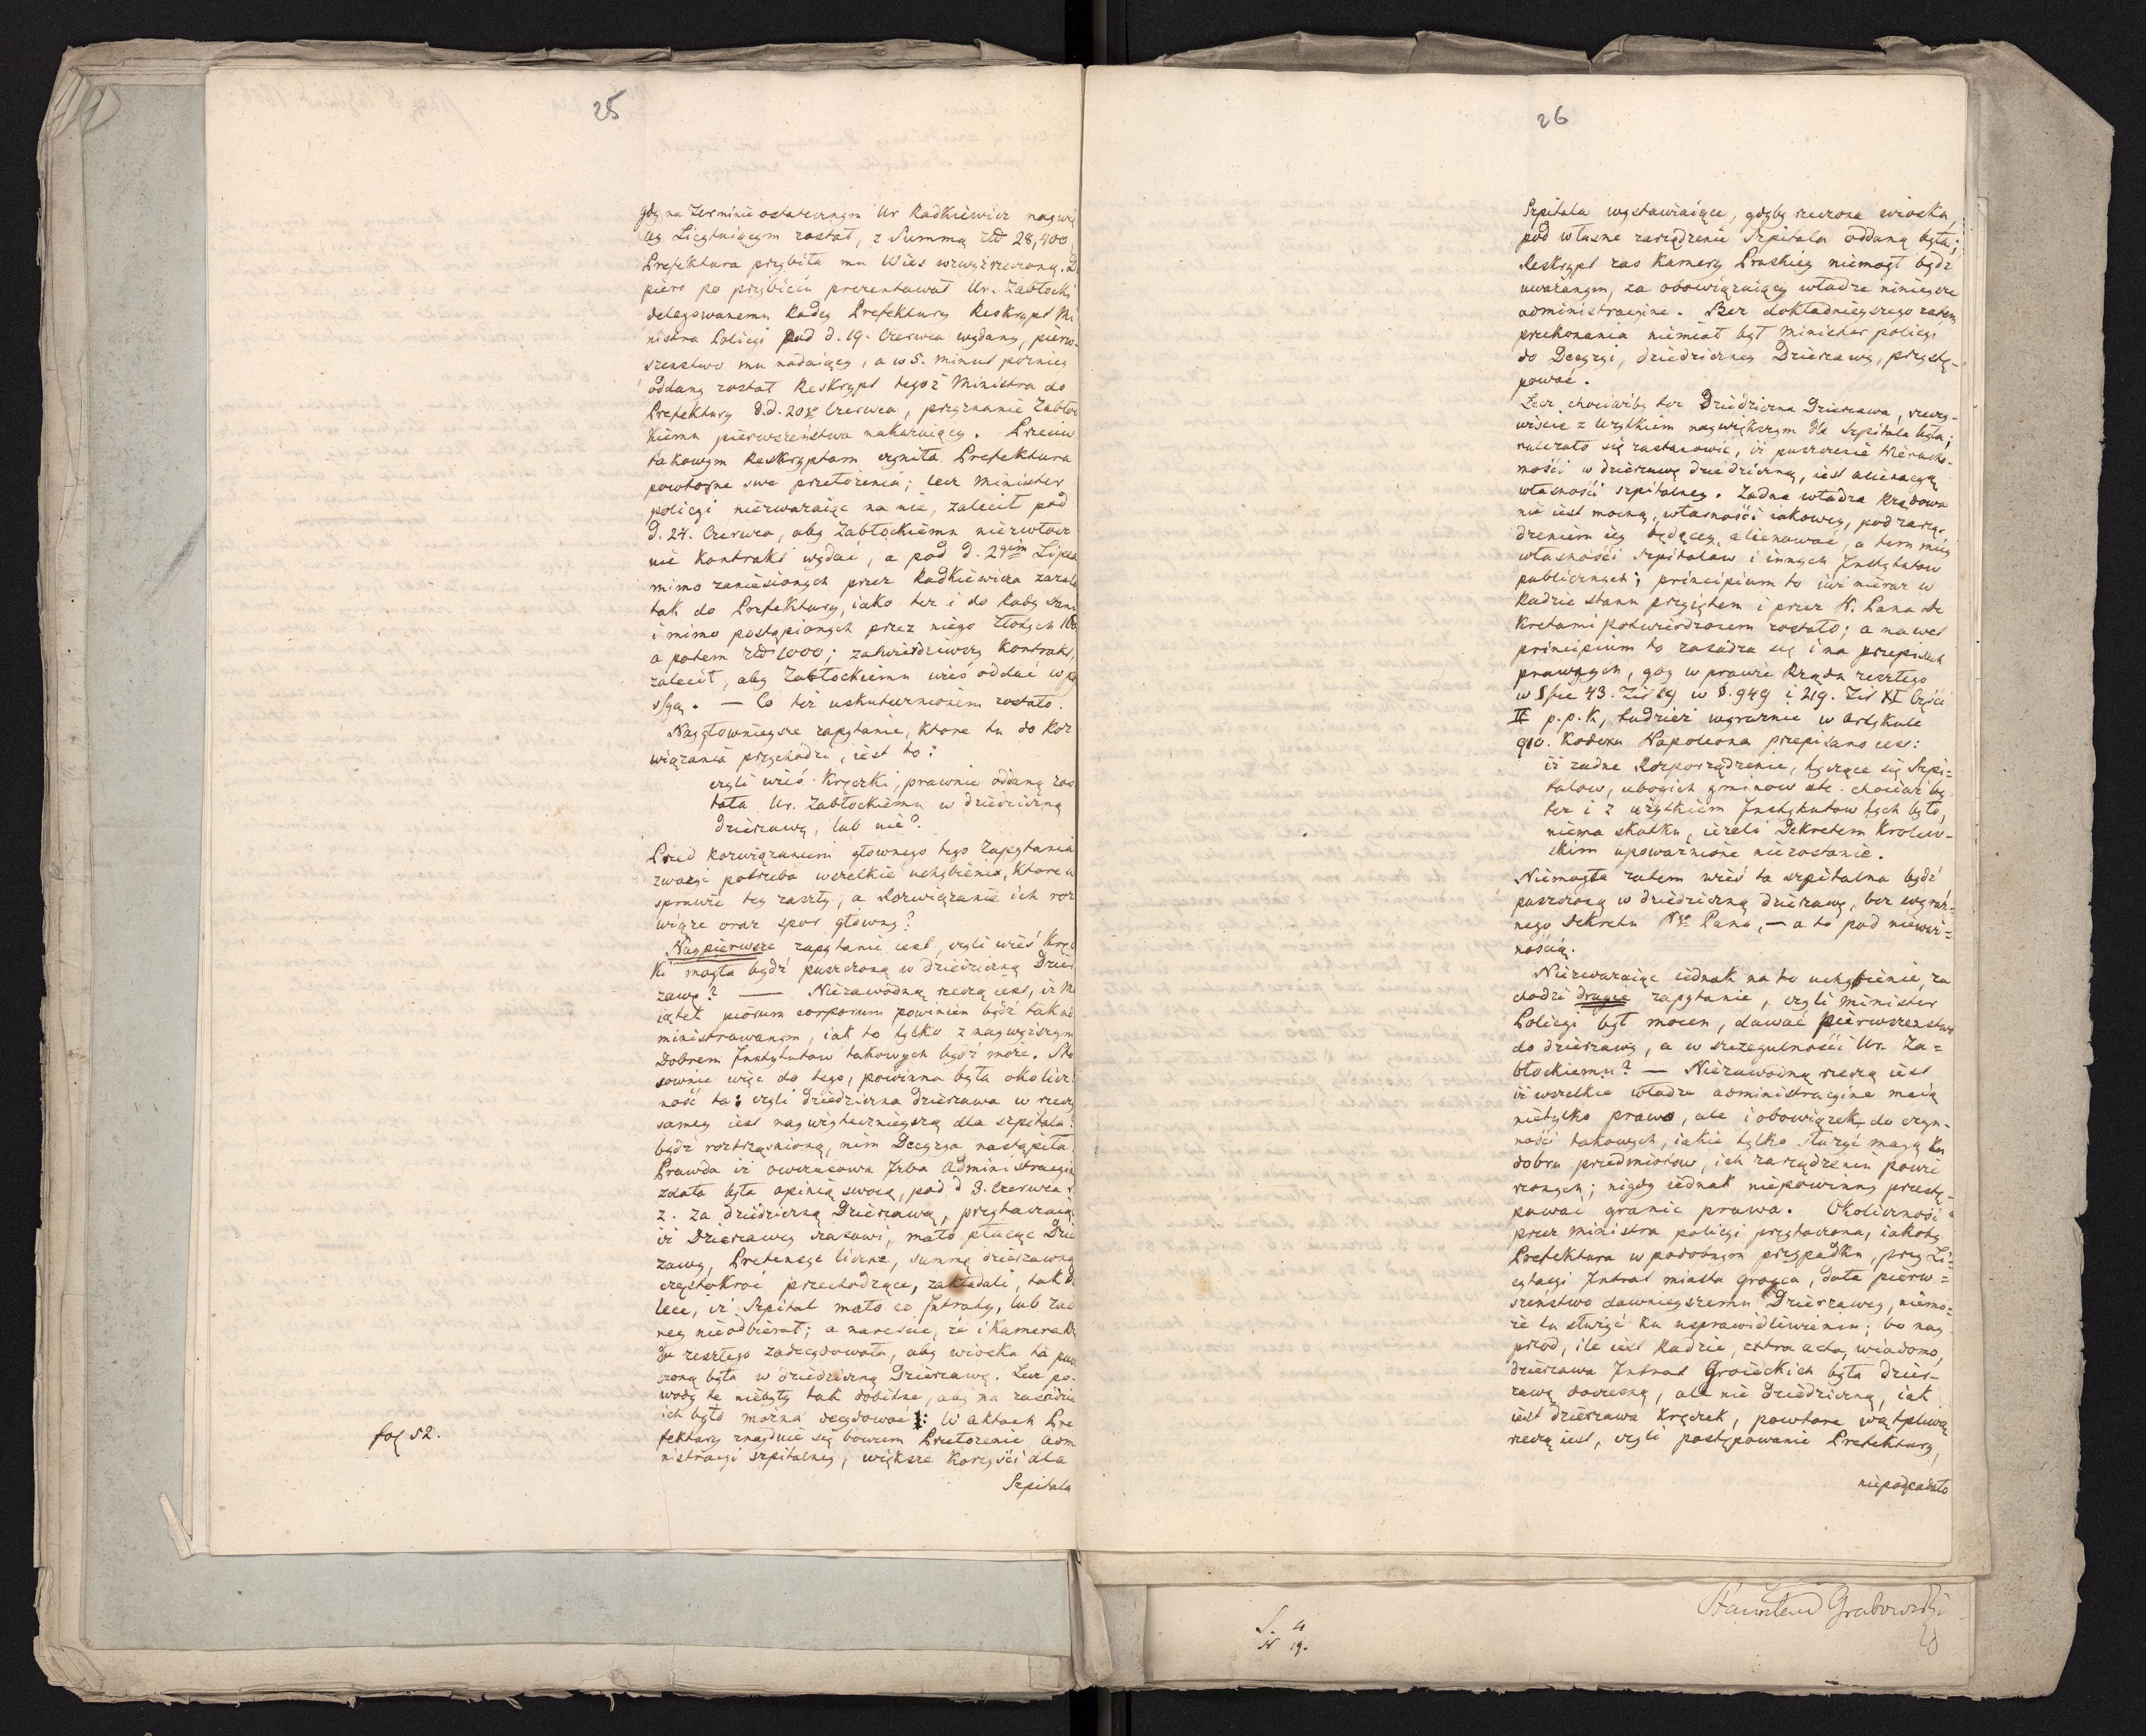 25
gdy na Terminie ostatecznym Ur Radkiewicz naywię
cey Licytuiącym został, z Summą złt 28,400,
Prefektura przybiła mu Wieś wzwyż rzeczoną. Do
piero po przybiciu prezentował Ur. Zabłocki
delegowanemu Radcy Prefektury Reskrypt Mi
nistra Policyi pod d. 19. Czerwca wydany, pierw-
szenstwo mu nadaiący, a w 5. minut pozniey
oddany został Reskrypt tegoż Ministra do
Prefektury d.d. 20go Czerwca, przyznanie Zabłoc
kiemu pierwszeństwa nakazuiący. Przeciw
takowym Reskryptom czyniła Prefektura
powtorne swe przełożenia; lecz Minister
policyi niezwazaiąc na nie, zalecił pod
d. 24. Czerwca, aby Zabłockiemu niezwłocz
nie kontrakt wydać, a pod d. 29tym Lipca
mimo zaniesionych przez Radkiewicza zażale
tak do Prefektury, iako tez i do Rady Stanu
i mimo postąpionych przez niego Złotych 100
a potem złt 1000; zatwierdziwszy kontrakt,
zalecił, aby Zabłockiemu wieś oddać w po
ssyą. — Co też uskutecznionem zostało.
Naygłownieysze zapytanie, ktore tu do Roz
wiązania przychodzi, iest to:
czyli wieś Kręczki, prawnie oddaną zos
tała Ur. Zabłockiemu w dziedziczną
dzierzawę, lub nie?
Przed rozwiązaniem głownego tego zapytania
zważyć potrzeba wszelkie uchybienia, ktore w
sprawie tey zaszły, a Rozwiązanie ich roz
wiąze oraz spor głowny?
Naypierwsze zapytanie iest, czyli wieś Kręcz
ki mogła bydź puszczoną w dziedziczną Dzier
zawę? — Niezawodną rzeczą iest, iz Ma
iątek piorum corporum powinien bydź tak ad
ministrowanym, iak to tylko z naywyższym
Dobrem Instytutow takowych bydź może. Sto
sownie więc do tego, powinna była okolicz
ność ta: czyli dziedziczna dzierzawa w rzeczy
samey iest nayużytecznieyszą dla szpitala?
bydź roztrząsnioną, nim Decyzya nastąpiła.
Prawda iz owczasowa Izba Administracyjna
zdała była opinią swoią, pod d 3. Czerwca r.
z. za dziedziczną Dzierzawą, przytaczaiąc
iż Dzierzawcy czasowi, mało płacąc Dzier
zawy, Pretensye liczne, summę dzierzawną
częstokroć przechodzące, zakładali, tak da
lece, iż Szpital mało co Intraty, lub żad
ney nieodbierał; a nareszcie, że i Kamera Rzą
du zeszłego zadecydowała, aby wioska ta pusz
czoną była w dziedziczną Dzierzawę. Lecz po-
wody te niebyły tak dobitne, aby na zasadzie
ich było można decydować: W aktach Pre
fektury znayduie się bowiem Przełozenie Adm
nistracyi szpitalney, większe Korzyści dla
Szpitala
fol 52.
26
Szpitala wystawiaiące, gdyby rzeczona wioska,
pod własne zarządzenie Szpitala oddaną była;
Reskrypt zas Kamery Pruskiey niemogł bydź
uwazanym, za obowiązuiący władze ninieysze
administracyine. Bez dokładnieyszego zatem
przekonania niemiał był Minister policyi
do Decyzyi, dziedziczney Dzierzawy, przystę-
pować.
Lecz chociażby tez Dziedziczna Dzierzawa, rzeczy-
wiście z Uzytkiem naywiększym dla Szpitala była;
należało się zastanowić, iż puszczenie Nierucho-
mości w dzierzawę dziedziczną, iest alienacyą
własności szpitalney. Żadna władza Krajowa
nie iest mocną, własności iakowey, pod zarzą-
dzeniem iey będącey, alienować, a tem mniey
własności szpitalow i innych Instytutow
publicznych; principium to iuż nieraz w
Radzie stanu przyiętem i przez N. Pana De
kretami potwierdzonem zostało; a nawet
principium to zasadza się i na przepisach
prawnych, gdy w prawie Rządu zeszłego
w §fie 43. Tit 19 w §. 949 i 219. Tit XI Części
II p.p.K, tudzież wyraznie w Artykule
910. Kodexu Napoleona przepisano iest:
iż zadne Rozporządzenie, tyczące się Szpi=
talow, ubogich gminow etc. chociaż by
tez i z użytkiem Instytutow tych było,
niema skutku, iezeli Dekretem Krolew-
skim upoważnione niezostanie.
Niemogła zatem wieś ta szpitalna bydź
puszczoną w dziedziczną dzierzawę, bez wyraź-
nego Dekretu N.go Pana, — a to pod nieważ=
nością.
Niezwazaiąc iednak na to uchybienie, za
chodzi drugie zapytanie, czyli Minister
Policyi był mocen, dawać pierwszenstwo
do dzierzawy, a w szczegulności Ur. Za=
błockiemu? — Niezawodną rzeczą iest
iż wszelkie władze administracyine maią
nietylko prawo, ale i obowiązek do czyn-
ności takowych, iakie tylko służyć mogą ku
dobru przedmiotow, ich zarządzeniu powie
rzonych; nigdy iednak niepowinny przestę-
pować granic prawa. Okoliczność
przez Ministra policyi przytoczona, iakoby
Prefektura w podobnym przypadku, przy Li-
cytacyi Intrat miasta Groyca, dała pierw=
szeństwo dawnieyszemu Dzierzawcy, niemo=
że tu służyć ku usprawiedliwieniu; bo nay
przod, ile iest Radzie, extra acta, wiadomo,
dzierzawa Intrat Groieckich była dzier-
zawą doczesną, ale nie dziedziczną, iak
iest dzierzawa Kręczek, powtore wątpliwą
rzeczą iest, czyli postępowanie Prefektury,
niepodpadało
S. 4
N 19.
Stanisław Grabowski